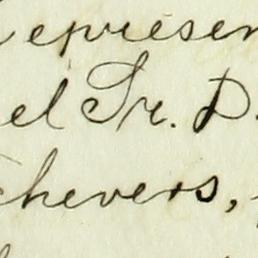 epresen
el Sr. D.
chevers,